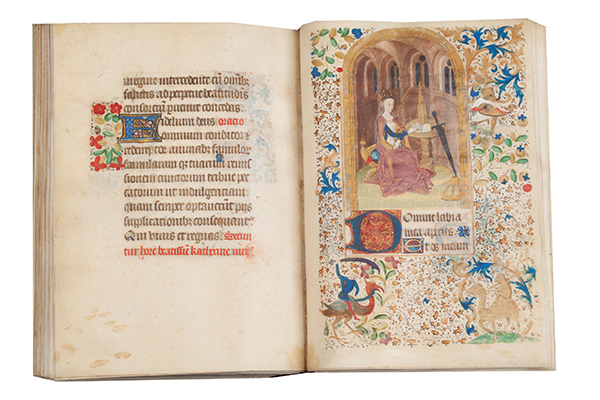 uirgine intercedente cū omnibꝰ
sanctis ad perpetue beatitudīs
consorcium puenire concedas.
Fidelium deus oratio
omnium conditor &
redemptor animabꝰ famulor
famularum qꝫ tuarum remis
sionem cunctorum tribue pec
catorum ut indulgenciam
quam semper optauerunt pijs
supplicationibꝰ consequant
Qui viuis et regnas. Secun
tur hore beatissie katherine
Domine labia
mea aperies.
Et os meum